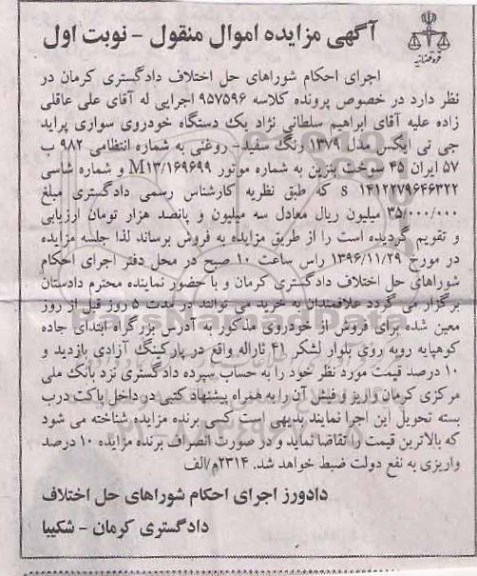 آگهی مزایده اموال منقول - نوبت اول
قوه قضائیه
اجرای احکام شوراهای حل اختلاف دادگستری کرمان در
نظر دارد در خصوص پرونده کلاسه ۹۵۷۵۹۶ اجرایی له آقای علی عاقلی
زاده علیه آقای ابراهیم سلطانی نژاد یک دستگاه خودروی سواری پراید
جی تی ایکس مدل ۱۳۷۹ رنگ سفید- روغنی به شماره انتظامی ۹۸۲ ب
۵۷ ایران ۴۵ سوخت بنزین به شماره موتور M۱۳/۱۶۹۶۹۹ و شماره شاسی
s ۱۴۱۲۲۷۹۶۴۶۳۲۲ که طبق نظریه کارشناس رسمی دادگستری مبلغ
۳۵/۰۰۰/۰۰۰ میلیون ریال معادل سه میلیون و پانصد هزار تومان ارزیابی
و تقویم گردیده است را از طریق مزایده به فروش برساند لذا جلسه مزایده
در مورخ ۱۳۹۶/۱۱/۲۹ راس ساعت ۱۰ صبح در محل دفتر اجرای احکام
شوراهای حل اختلاف دادگستری کرمان و با حضور نماینده محترم دادستان
برگزار می گردد علاقمندان به خرید می توانند در مدت ۵ روز قبل از روز
معین شده برای فروش از خودروی مذکور به آدرس بزرگراه ابتدای جاده
کوهپایه روبه روی بلوار لشکر ۴۱ ثاراله واقع در پارکینگ آزادی بازدید و
۱۰ درصد قیمت مورد نظر خود را به حساب سپرده دادگستری نزد بانک ملی
مرکزی کرمان واریز و فیش آن را به همراه پیشنهاد کتبی در داخل پاکت درب
بسته تحویل این اجرا نمایند بدیهی است کسی برنده مزایده شناخته می شود
که بالاترین قیمت را تقاضا نماید و در صورت انصراف برنده مزایده ۱۰ درصد
واریزی به نفع دولت ضبط خواهد شد. ۲۳۱۴م/الف
دادورز اجرای احکام شوراهای حل اختلاف
دادگستری کرمان - شکیبا